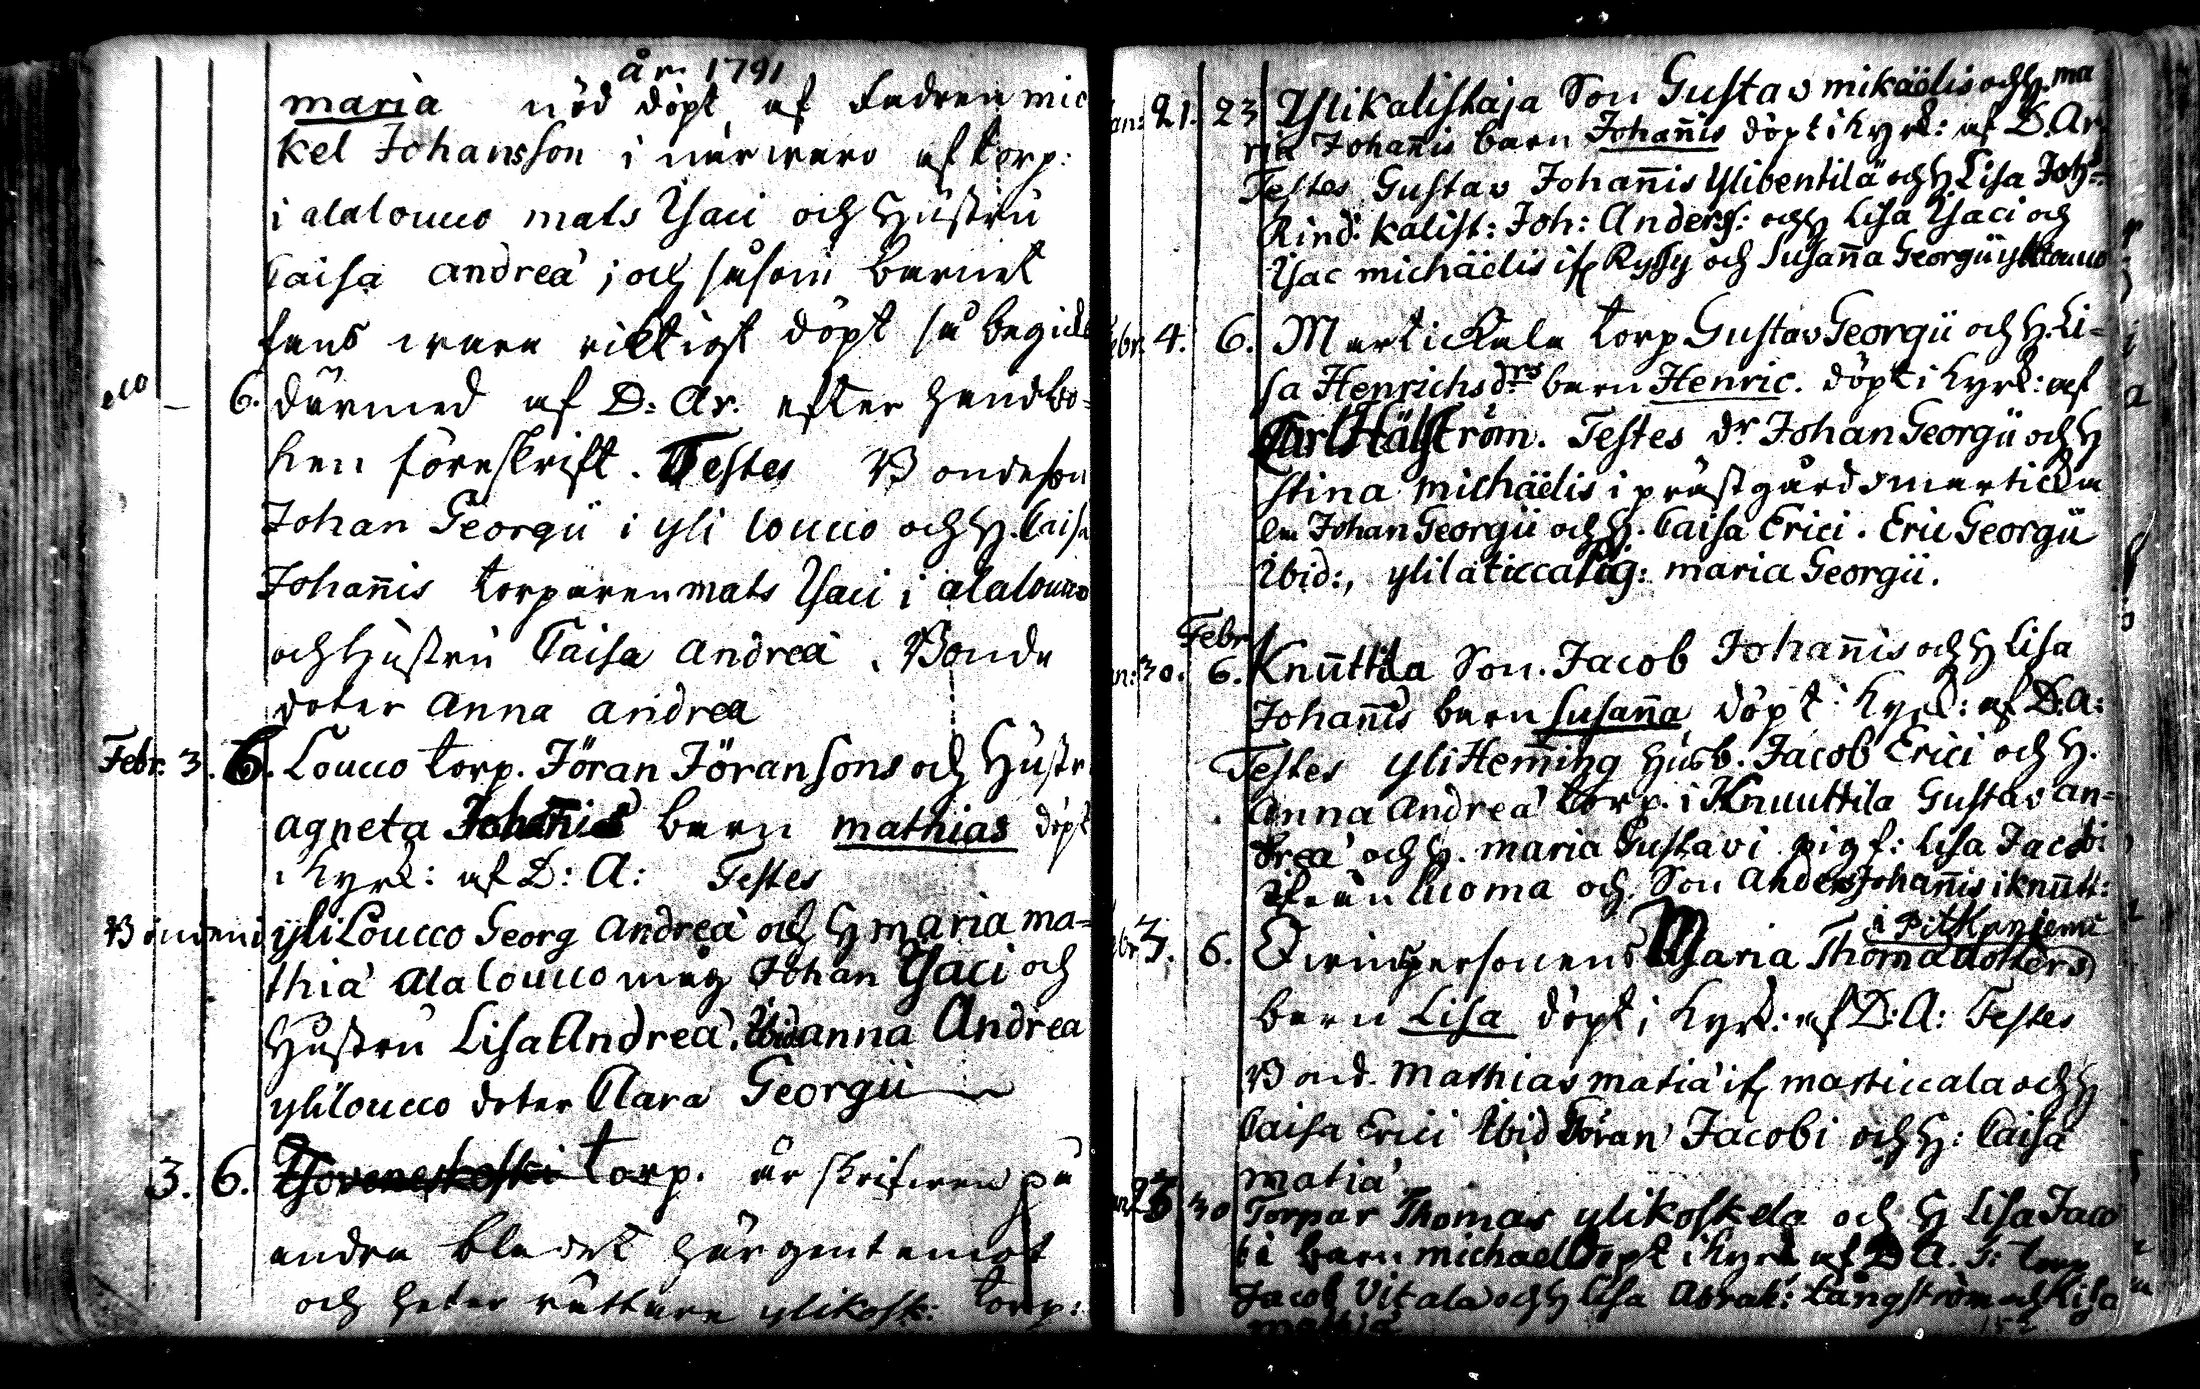 år 1791
maria nöd döpt af Fadren mic
kel Johansson i närwaro af torp:
i alaloucco mats Ysaci och Hustru
Caisa andreæ ; och såsom barnet
fans wara riktigt döpt så begicks
6. därmed af D: Ar. efter handbo=
ken föreskrift. Testes Bondeson
Johan Georgii i yli loucco och H. Caisa
Johan̄is torparen mats Ysaci i alaloucco
och Hustru Caisa andreæ . Bonde
doter anna andrea
Febr. 3. 6. Loucco torp. Jöran Jöransons och Hustr
agneta Johan̄is barn mathias döpt
i Kyrk: af D: A: Testes
Bonden i yli Loucco Georg andreæ och H maria ma=
thiæ alaloucco måg Johan Ysaci och
Hustru Lisa Andreæ. Ibid anna Andrea
yliloucco doter Clara Georgii
3. 6. torp. är skrifwen på
andra bladet här gent emot
och heter rättare ylikosk: torp:
21. 23 Ylikalistaja Son Gustav mikäelis och H. ma
ria Johan̄is barn Johan̄is döpt i kyrk: af D. Ar.
Testes Gustav Johan̄is Ylibentilä och H. Lisa Joh:
Rind: kalist: Joh: Anders: och H Lisa Ysaci och
Ysac michäelis if Kyöy och Susan̄a Georgii
4. 6. Martickala torp Gustav Georgii och H. Li=
sa Henrichsdrs barn Henric. döpt i kyrk: af
Carl Hälström. Testes dr Johan Georgii och H
Stina michäelis i prästgårds marticka
la Johan Georgii och H. Caisa Erici . Eric Georgii
Ibid:, ylilaticca pig: maria Georgii.
Febr
30. 6. Knuttila Son. Jacob Johan̄is och H Lisa
Johan̄is barn Susan̄a döpt i kyrk: af D. A:
Testes yli Hem̄ing Husb. Jacob Erici och H.
anna andreæ torp. i Knuuttila Gustav an=
dreæ och H. maria Gustavi pig f: Lisa Jacobi
ifrån luoma och Son anders Johan̄is i knutt:
i Pitkäniemi
3. 6. Qwinspersonens Maria Thomadotters
barn Lisa döpt i Kyrk: af D: A: Testes
Bond. Mathias matiæ if marticcala och H
Caisa Erici Ibid Jöran Jacobi och H: Caisa
matiæ
23 30 Torpar Thomas ylikoskela och H Lisa Jaco
bi barn michael döpt i kyrk af D A. T: torp
Jacob Vitala och H Lisa Abrah: Långström och Lisa